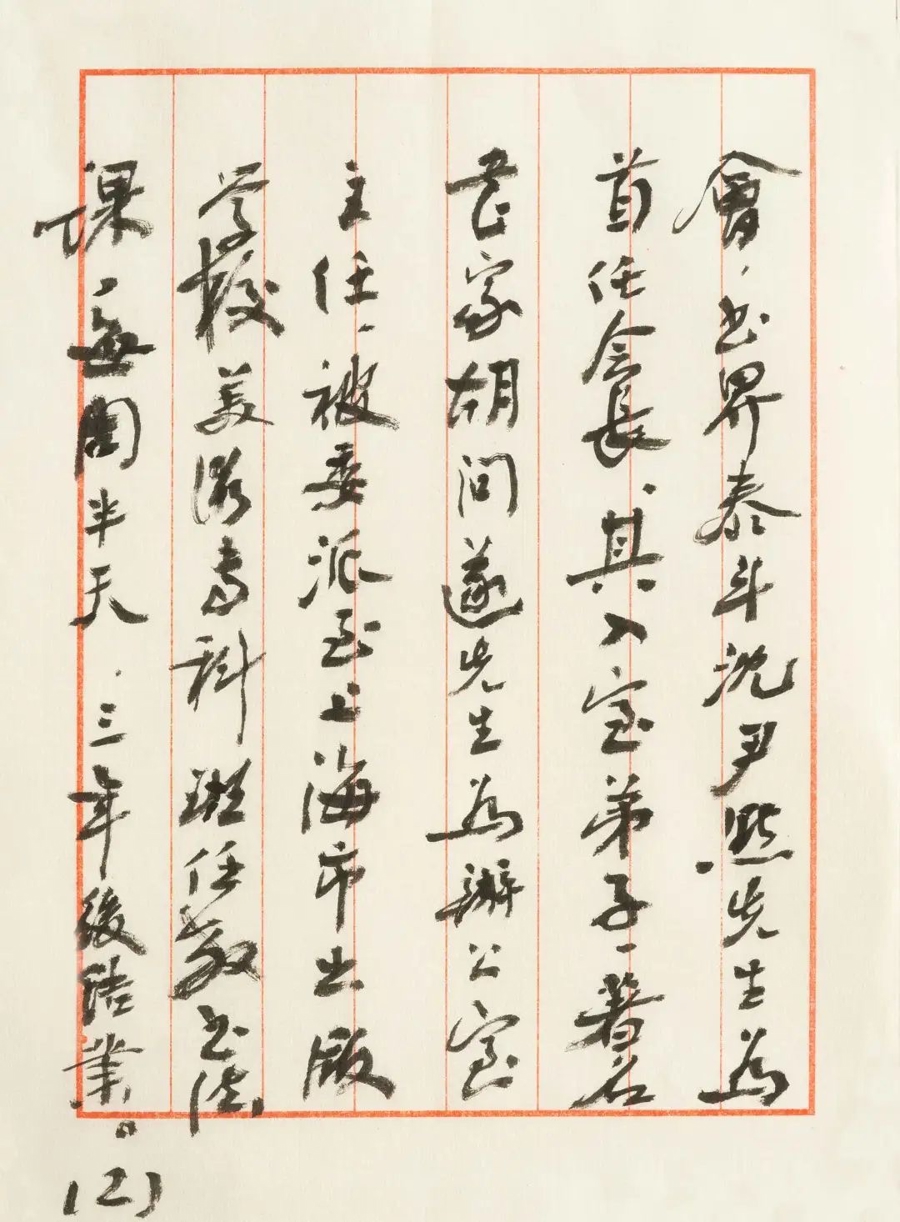 會、书界泰斗沈尹默先生為
首任会長、其入室弟子、著名
書家胡问遂先生為辦公室
主任、被委派至上海市出版
学校美術专科班任教书法
課、每周半天、三年後结業。
(2)